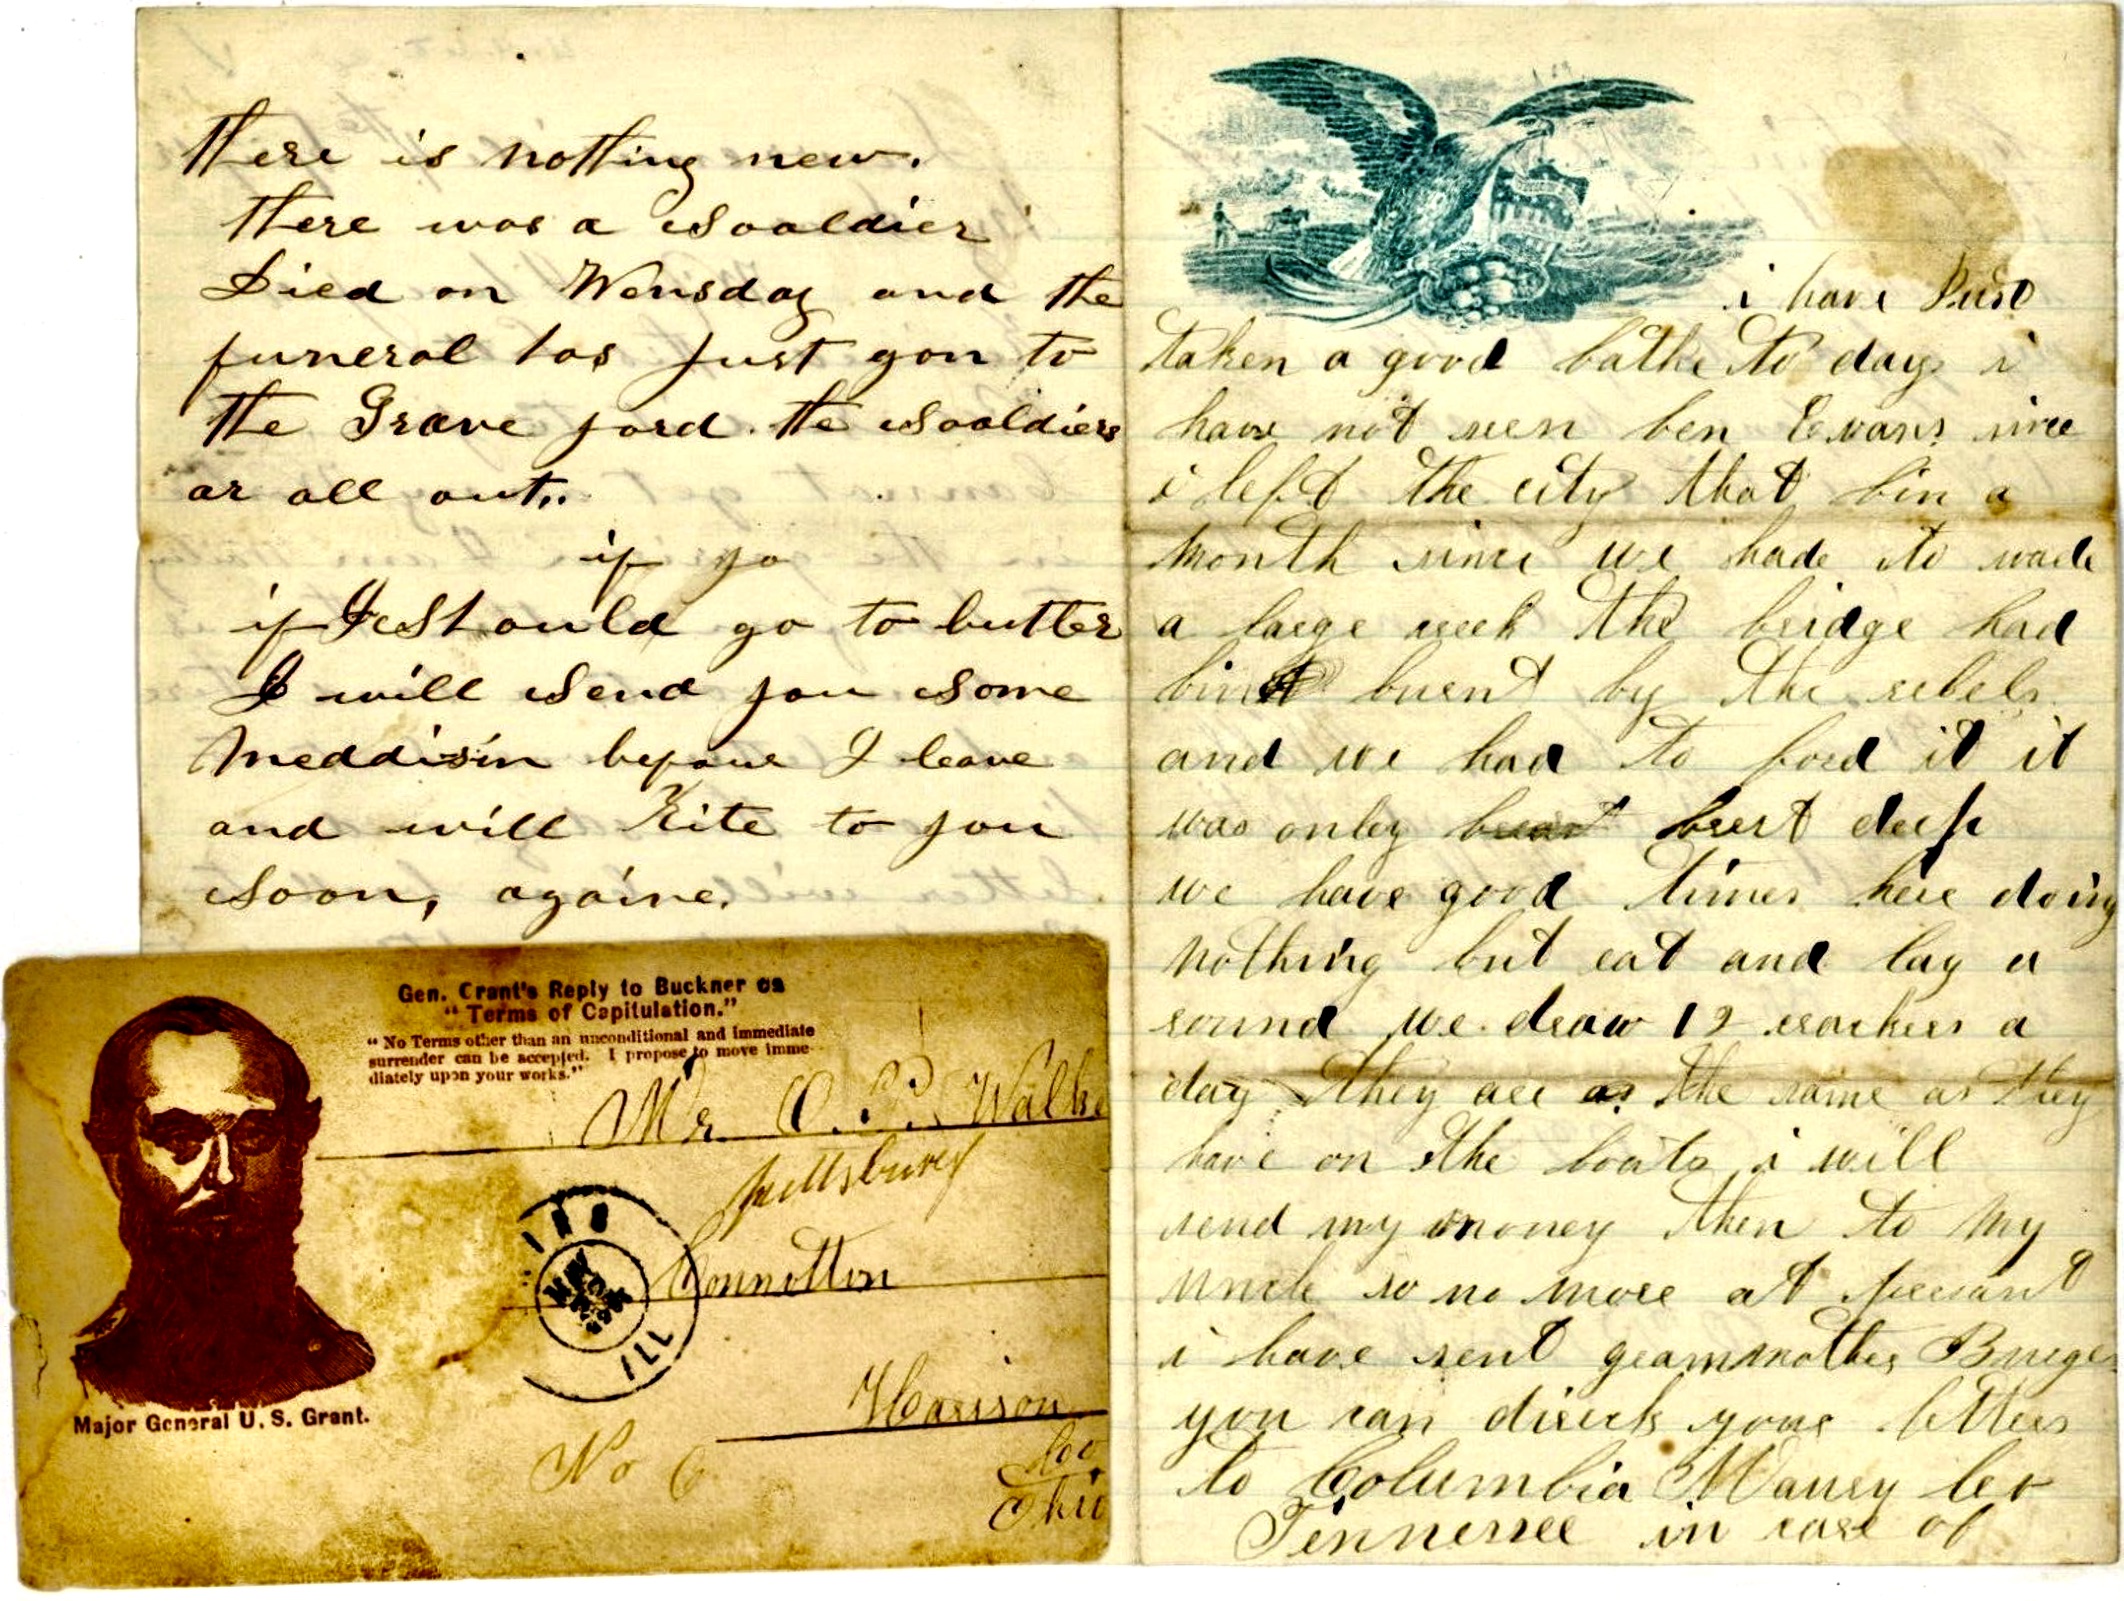 there is notting new.
there was a Sooaldier
Died on Wensday and the
funeral has just gon to
the Grave yord. the Sooaldiers
ar all out..
if yo
if I Should go to butler
I will Send you Some
Meddisin befour I leave
and will Rite to you
Soon, againe.
Gen. Grant's Reply to Buckner as
"Terms of Capitulation."
"No Terms other than an unconditional and immediate
surrender can be accepted. I propose to move imme-
diately upon your works."
Mr. O. P. Walke
Connotton
Harrison
Co
Ohio
No 6
ILL
Major General U. S. Grant.
i have Just
taken a good bathe to day i
have not seen ben Evans since
i left the city that bin a
month since we hade to wade
a large creek the bridge had
bin burnt by the rebels
and we had to ford it it
was only brest deep
we have good times here doing
nothing but eat and lay a
round we draw 12 crackers a
day they are as the same as they
have on the boats i will
send my money then to my
uncle so no more at presant
i have sent grammother
you can direck your letters
to Columbia Maury Co
Tennessee in case of